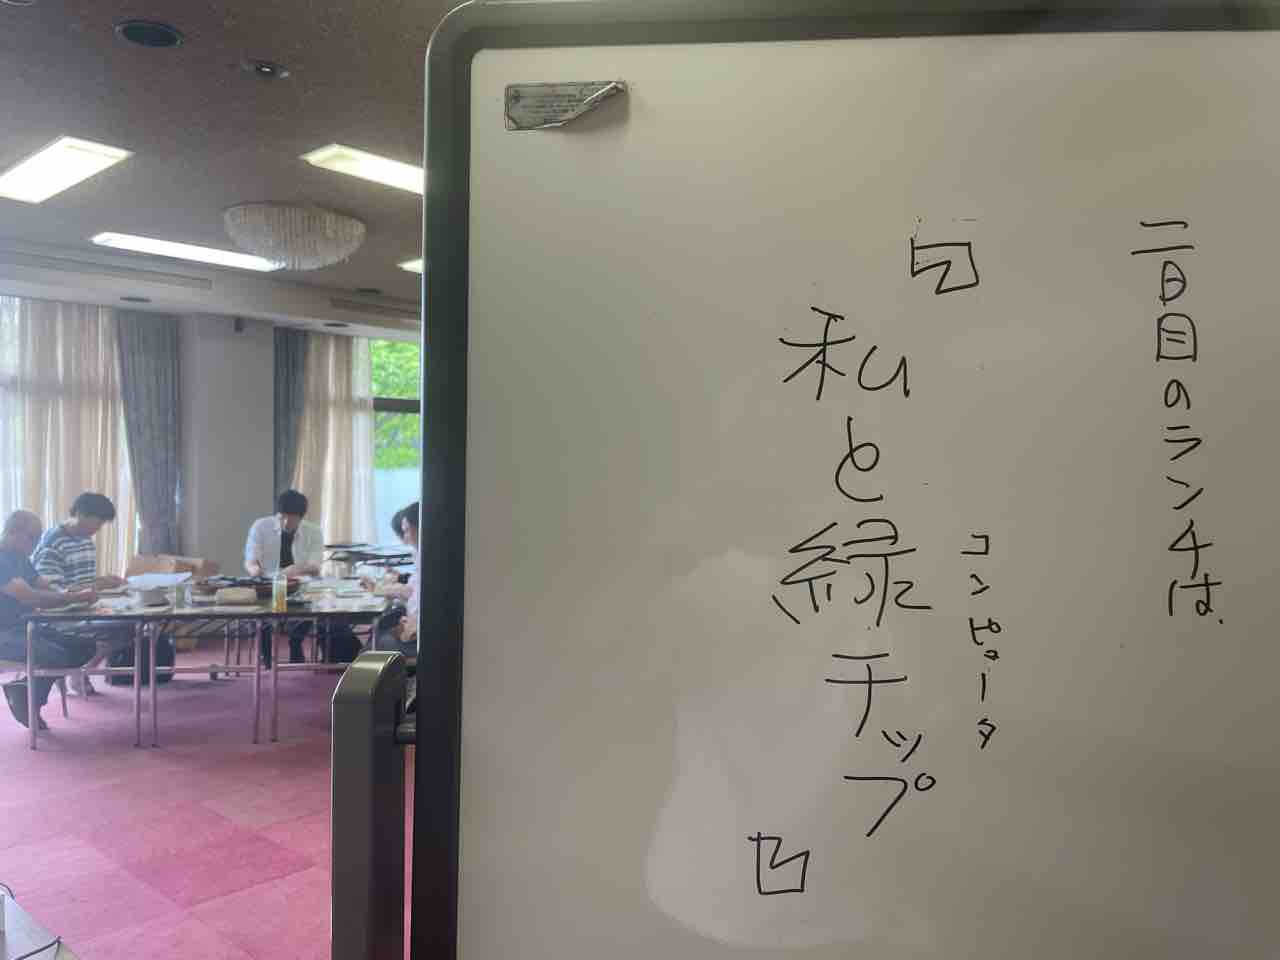 二日目のランチは
コンピュータ
【私と緑チップ】